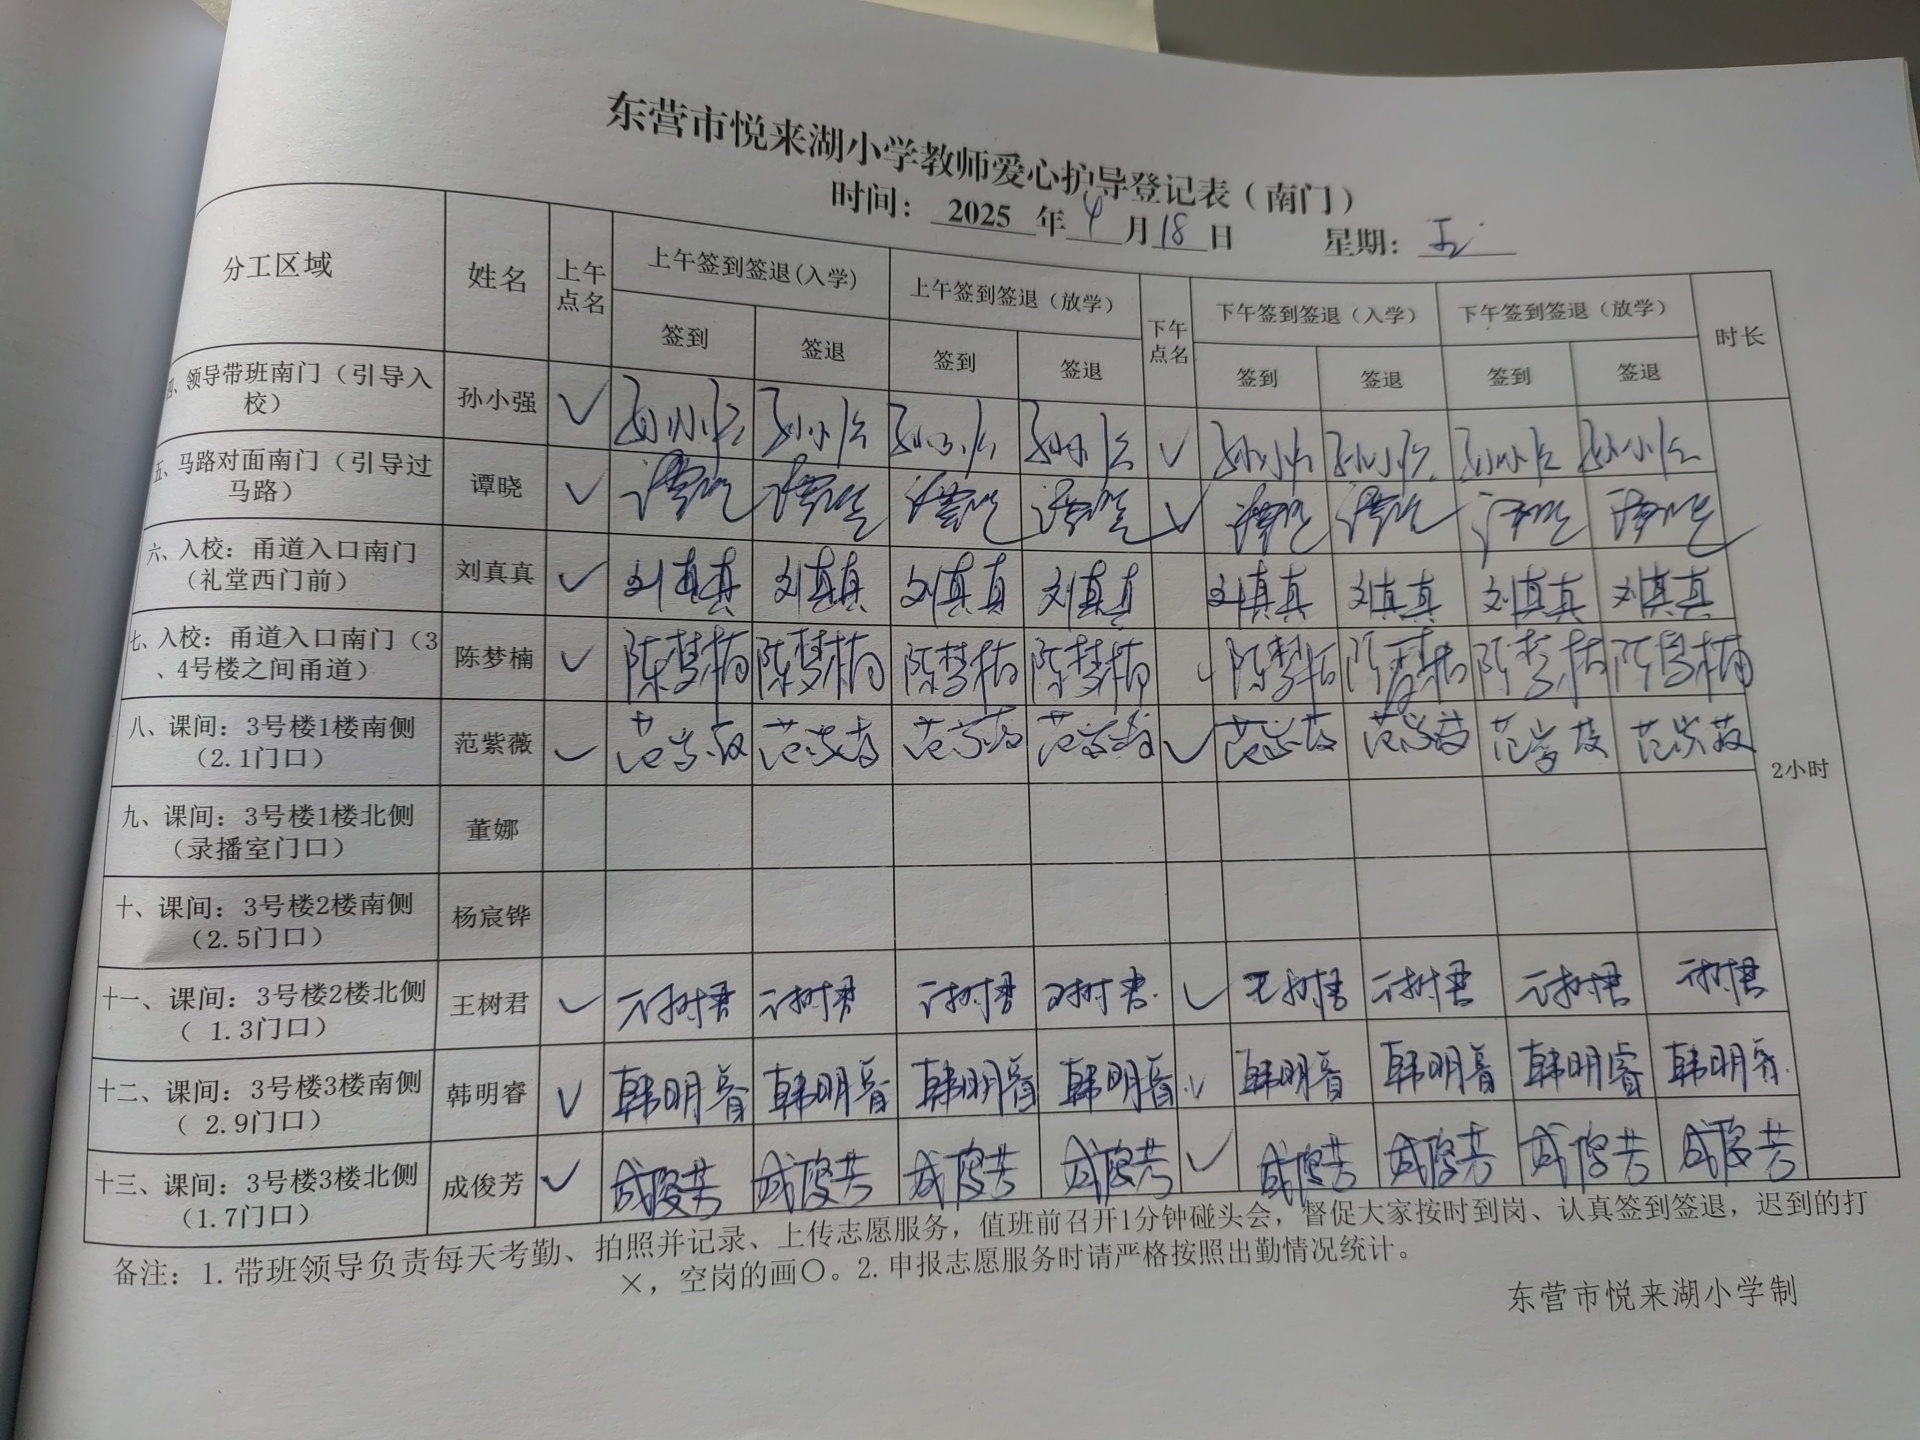 东营市悦来湖小学教师爱心护导登记表（南门）
时间： 2025 年 4 月 18 日 星期： 五
分工区域 姓名 上午点名 上午签到签退(入学) 上午签到签退（放学） 下午点名 下午签到签退（入学） 下午签到签退（放学） 时长
签到 签退 签到 签退 签到 签退 签到 签退
四、领导带班南门（引导入校） 孙小强 ✓ 孙小强 孙小强 孙小强 孙小强 ✓ 孙小强 孙小强 孙小强 孙小强
五、马路对面南门（引导过马路） 谭晓 ✓ 谭晓 谭晓 谭晓 谭晓 ✓ 谭晓 谭晓 谭晓 谭晓
六、入校：甬道入口南门（礼堂西门前） 刘真真 ✓ 刘真真 刘真真 刘真真 刘真真 刘真真 刘真真 刘真真 刘真真
七、入校：甬道入口南门（3、4号楼之间甬道） 陈梦楠 ✓ 陈梦楠 陈梦楠 陈梦楠 陈梦楠 ✓ 陈梦楠 陈梦楠 陈梦楠 陈梦楠
八、课间：3号楼1楼南侧（2.1门口） 范紫薇 ✓ 范紫薇 范紫薇 范紫薇 范紫薇 ✓ 范紫薇 范紫薇 范紫薇 范紫薇
2小时
九、课间：3号楼1楼北侧（录播室门口） 董娜
十、课间：3号楼2楼南侧（2.5门口） 杨宸铧
十一、课间：3号楼2楼北侧（ 1.3门口） 王树君 ✓ 王树君 王树君 王树君 王树君 ✓ 王树君 王树君 王树君 王树君
十二、课间：3号楼3楼南侧（ 2.9门口） 韩明睿 ✓ 韩明睿 韩明睿 韩明睿 韩明睿 ✓ 韩明睿 韩明睿 韩明睿 韩明睿
十三、课间：3号楼3楼北侧（1.7门口） 成俊芳 ✓ 成俊芳 成俊芳 成俊芳 成俊芳 ✓ 成俊芳 成俊芳 成俊芳 成俊芳
备注：1.带班领导负责每天考勤、拍照并记录、上传志愿服务，值班前召开1分钟碰头会，督促大家按时到岗、认真签到签退，迟到的打
×，空岗的画〇。2.申报志愿服务时请严格按照出勤情况统计。
东营市悦来湖小学制